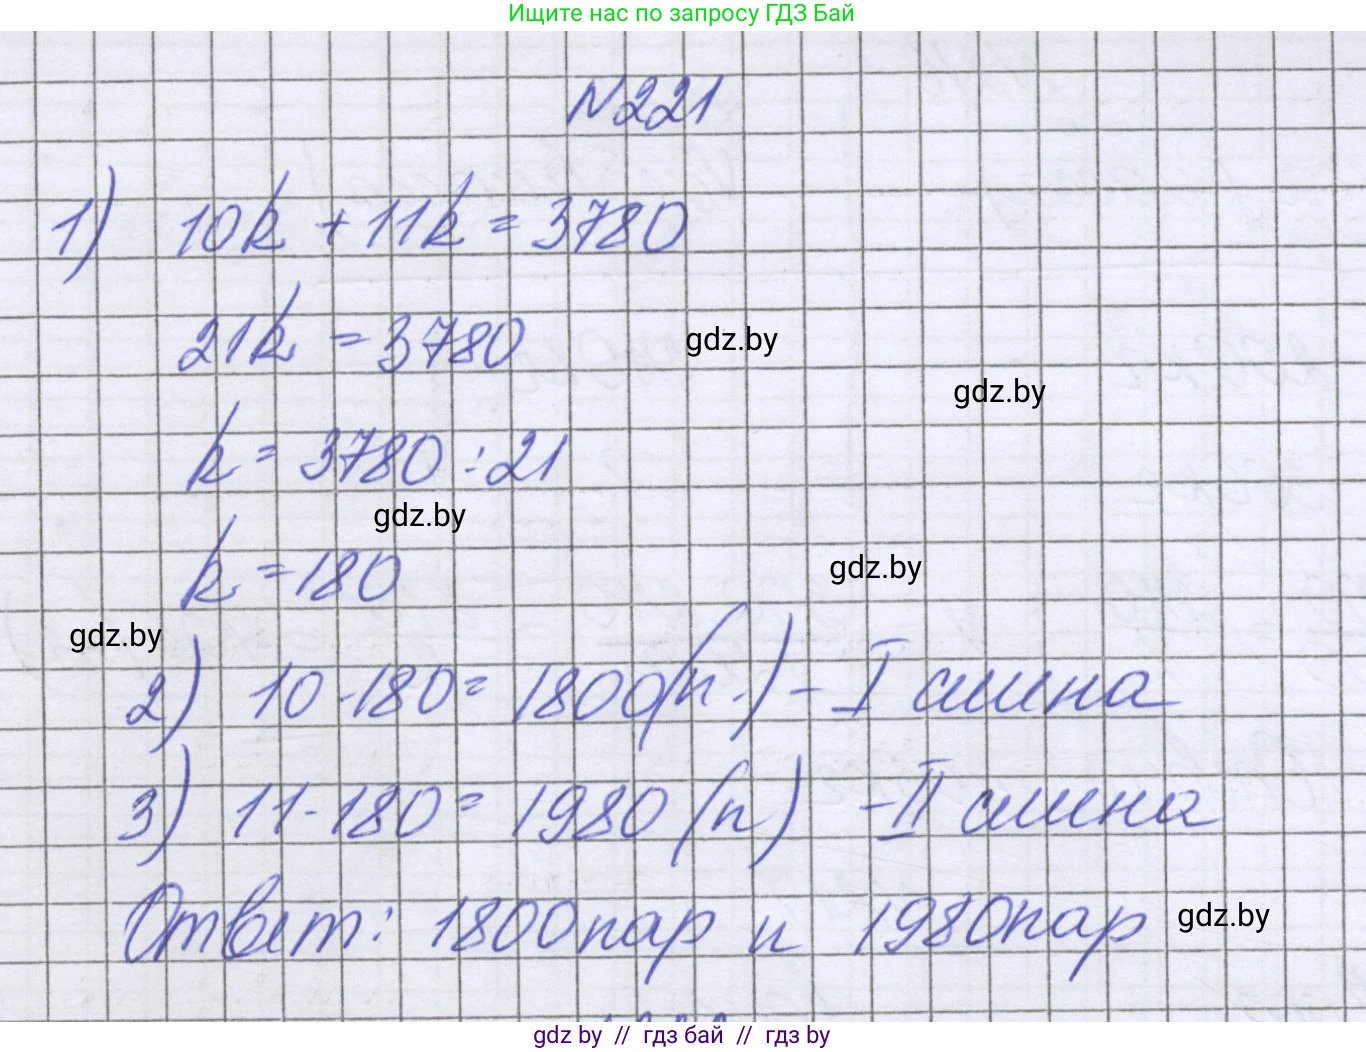 Ищите нас по запросу ГДЗ Бай
N221
1) 10k + 11k = 3780
21k = 3780
gdz.by
gdz.by
k = 3780 : 21
gdz.by
k = 180
gdz.by
gdz.by
2) 10·180 = 1800 (п.) - I смена
3) 11·180 = 1980 (п) - II смена
Ответ: 1800 пар и 1980 пар
gdz.by
gdz.by // гдз бай // гдз by